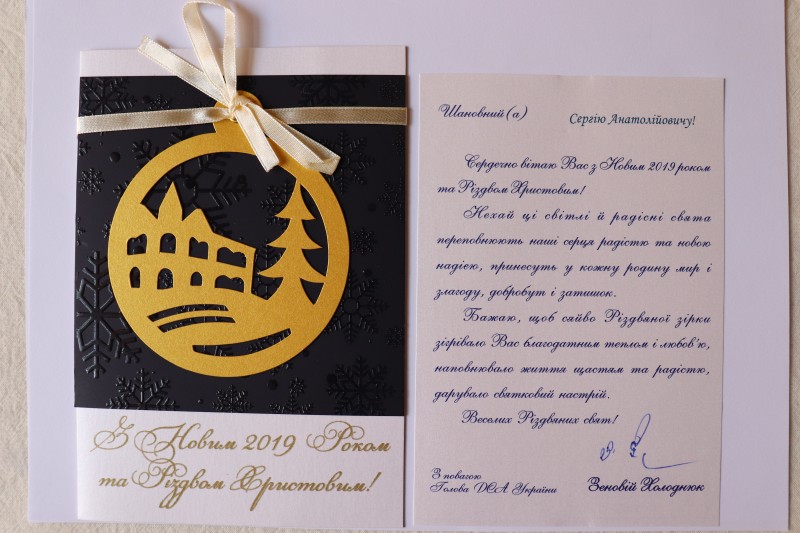 З Новим 2019 Роком
та Різдвом Христовим!
Шановний(а)
Сергію Анатолійовичу!
Сердечно вітаю Вас з Новим 2019 роком
та Різдвом Христовим!
Нехай ці світлі й радісні свята
переповнюють наші серця радістю та новою
надією, принесуть у кожну родину мир і
злагоду, добробут і затишок.
Бажаю, щоб сяйво Різдвяної зірки
зігрівало Вас благодатним теплом і любов'ю,
наповнювало життя щастям та радістю,
дарувало святковий настрій.
Веселих Різдвяних свят!
З повагою
Голова ДСА України
Зеновій Холоднюк